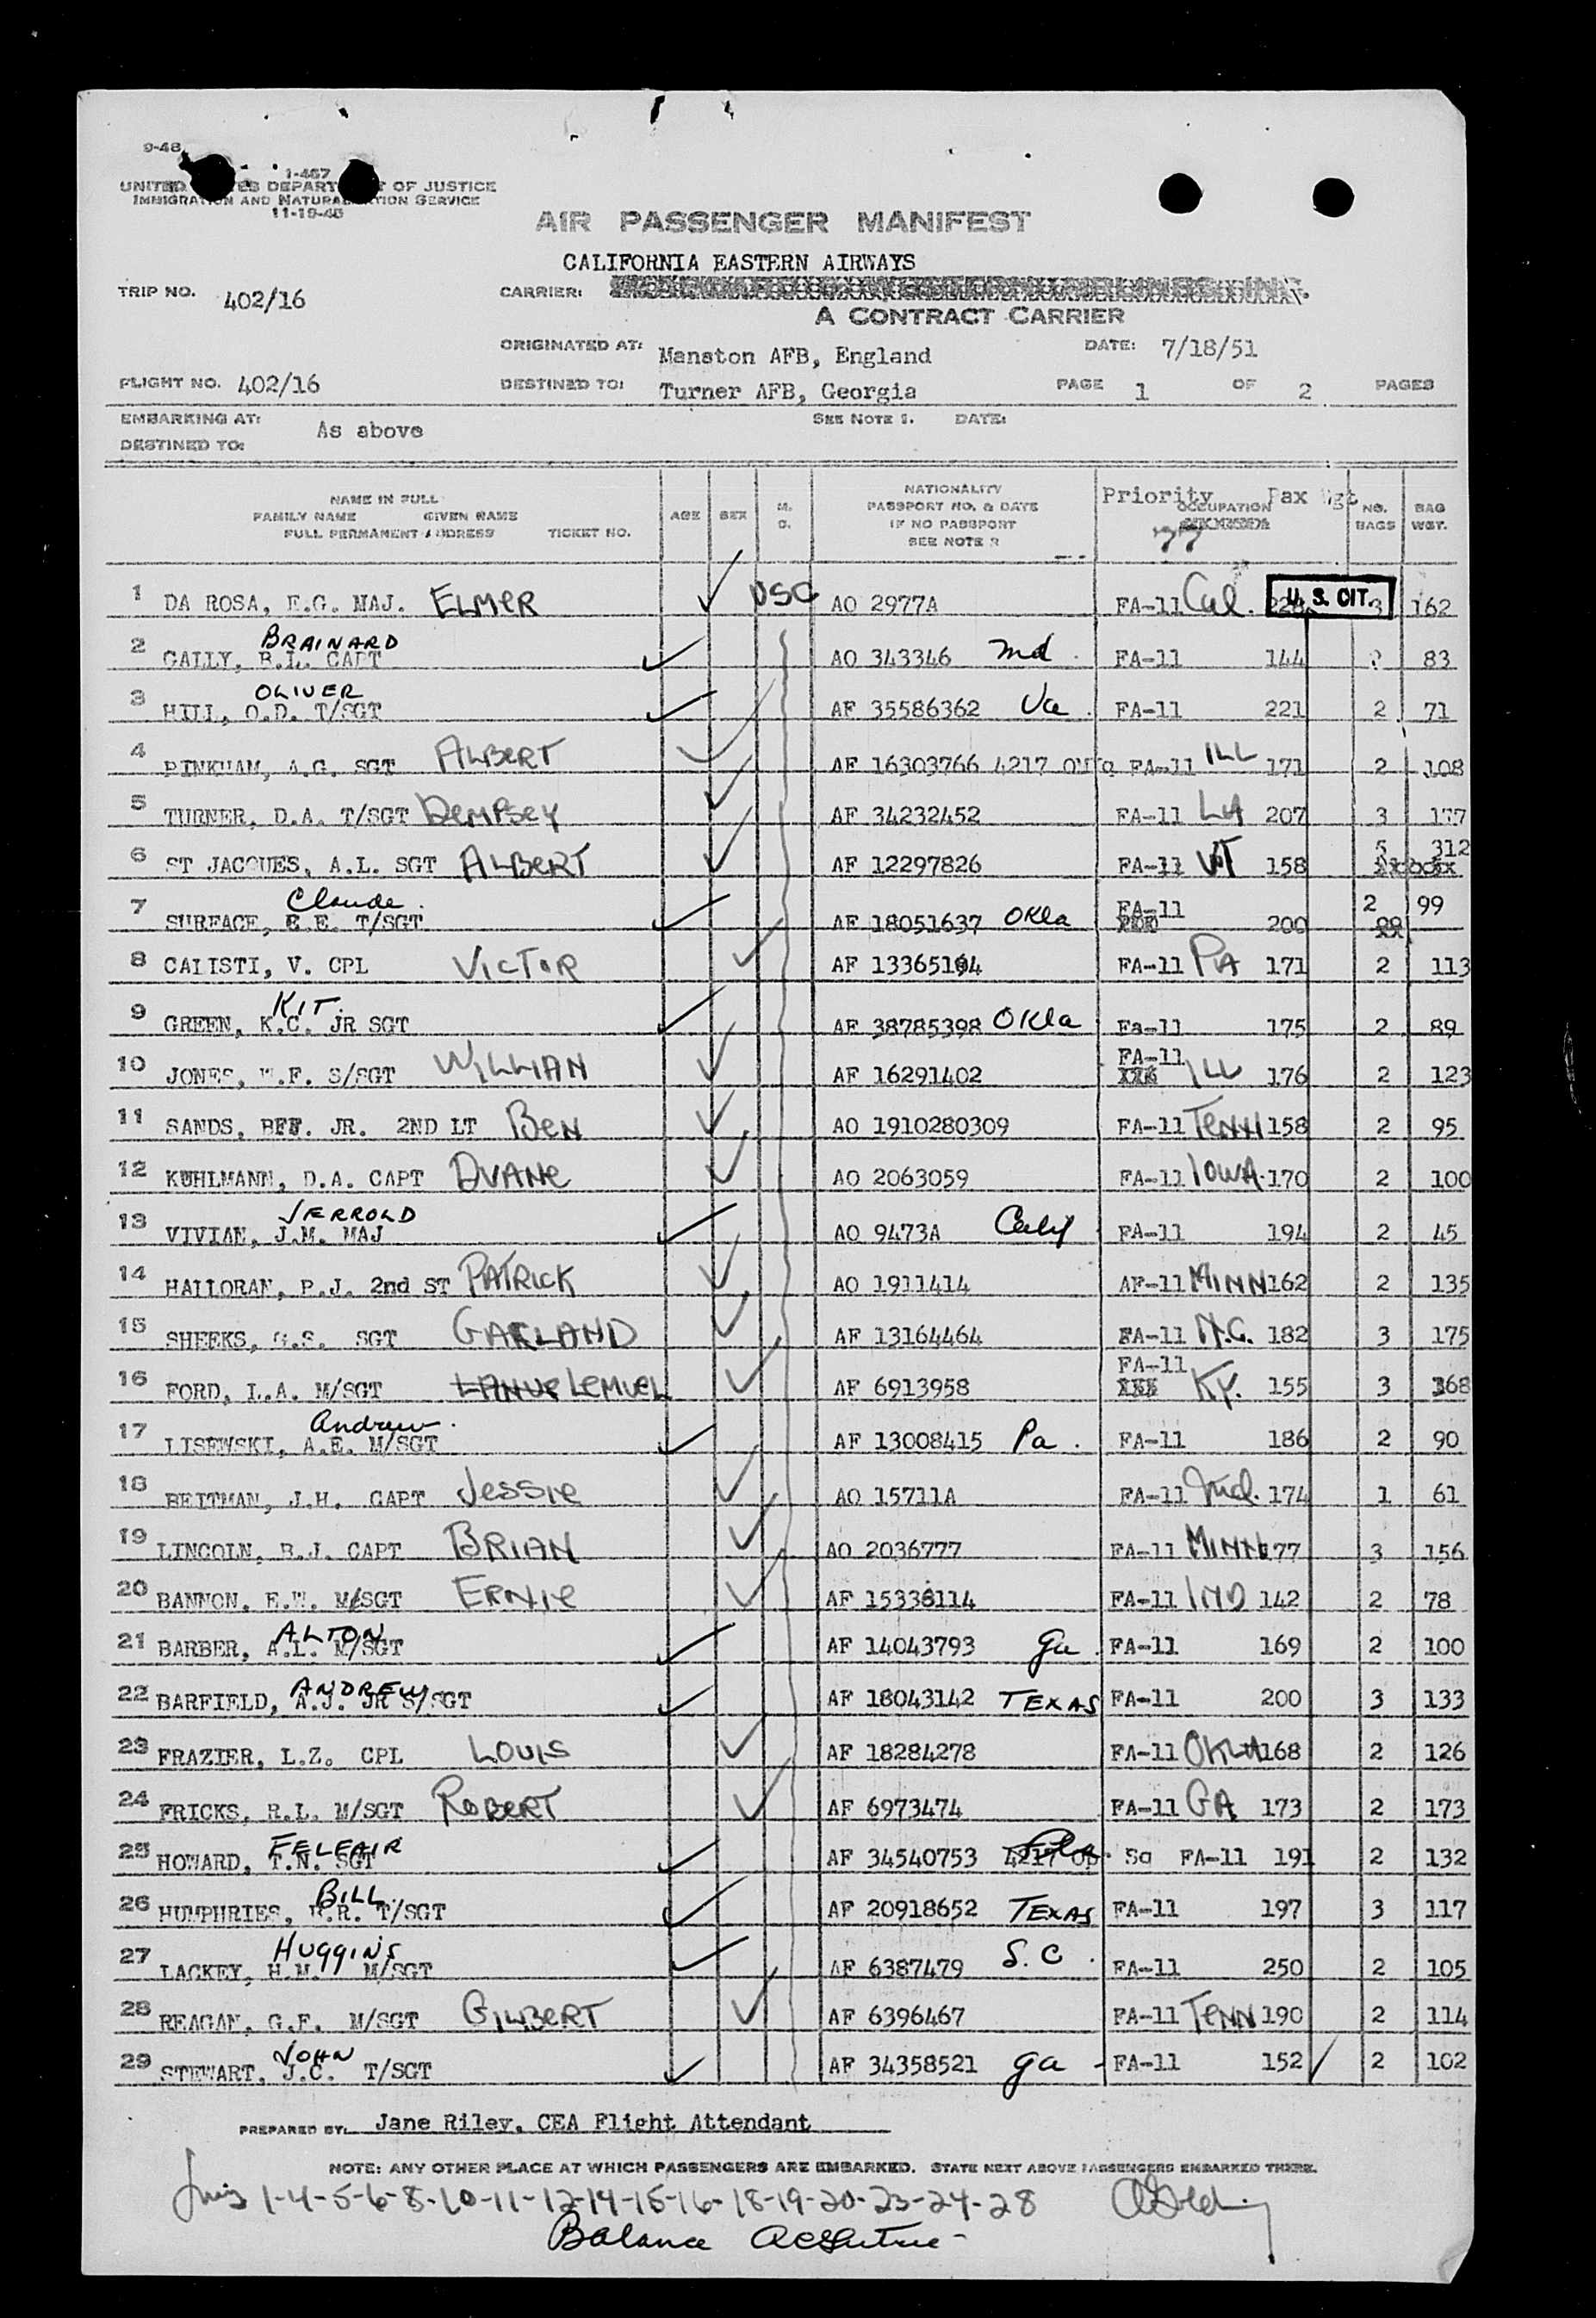 9-48
1-467
UNITED STATES DEPARTMENT OF JUSTICE
IMMIGRATION AND NATURALIZATION SERVICE
11-19-45
AIR PASSENGER MANIFEST
CALIFORNIA EASTERN AIRWAYS
TRIP NO. 402/16 CARRIER:
A CONTRACT CARRIER
ORIGINATED AT: Manston AFB, England DATE: 7/18/51
FLIGHT NO. 402/16 DESTINED TO: Turner AFB, Georgia PAGE 1 OF 2 PAGES
EMBARKING AT: As above SEE NOTE 1. DATE:
DESTINED TO:
NAME IN FULL
FAMILY NAME GIVEN NAME
FULL PERMANENT ADDRESS TICKET NO.
AGE SEX M. NATIONALITY
PASSPORT NO. & DATE
IF NO PASSPORT
SEE NOTE
Priority Pax Wgt
OCCUPATION
77
NO. BAGS BAG WGT.
1 DA ROSA, E.G. MAJ. ELMER USC AO 2977A FA-11 Cal. 228 U. S. CIT. 3 162
2 GALLY, B.L. CAPT BRAINARD AO 343346 Md. FA-11 144 83
3 HILL, O.D. T/SGT OLIVER AF 35586362 Va. FA-11 221 2 71
4 PINKHAM, A.G. SGT ALBERT AF 16303766 4217 FA-11 ILL 171 2 108
5 TURNER, D.A. T/SGT DEMPSEY AF 34232452 FA-11 LA 207 3 177
6 ST JACQUES, A.L. SGT ALBERT AF 12297826 FA-11 VT 158 5 312
7 SURFACE, E.E. T/SGT Claude. AF 18051637 OKla FA-11 200 2 99
8 CALISTI, V. CPL VICTOR AF 13365194 FA-11 PA 171 2 113
9 GREEN, K.C. JR SGT KIT. AF 38785398 OKla Fa-11 175 2 89
10 JONES, W.F. S/SGT WILLIAN AF 16291402 FA-11 ILL 176 2 123
11 SANDS, JR. 2ND LT BEN AO 1910280309 FA-11 TENN 158 2 95
12 KUHLMANN, D.A. CAPT DUANE AO 2063059 FA-11 IOWA 170 2 100
13 VIVIAN, J.M. MAJ JERROLD AO 9473A Calif FA-11 194 2 45
14 HALLORAN, P.J. 2nd ST PATRICK AO 1911414 AF-11 MINN 162 2 135
15 SHEEKS, G.S. SGT GARLAND AF 13164464 FA-11 N.C. 182 3 175
16 FORD, L.A. M/SGT LEMUEL AF 6913958 FA-11 KY. 155 3 168
17 LISEWSKI, A.E. M/SGT Andrew. AF 13008415 Pa. FA-11 186 2 90
18 BEITMAN, J.H. CAPT JESSIE AO 15711A FA-11 Ind. 174 1 61
19 LINCOLN, B.J. CAPT BRIAN AO 2036777 FA-11 MINN 177 3 156
20 BANNON, E.W. M/SGT ERNIE AF 15338114 FA-11 IND 142 2 78
21 BARBER, A.L. M/SGT ALTON AF 14043793 Ga. FA-11 169 2 100
22 BARFIELD, A.J. JR S/SGT ANDREW AF 18043142 TEXAS FA-11 200 3 133
23 FRAZIER, L.Z. CPL LOUIS AF 18284278 FA-11 OKLA 168 2 126
24 FRICKS, R.L. M/SGT ROBERT AF 6973474 FA-11 GA 173 2 173
25 HOWARD, SGT FELEAIR AF 34540753 4217 Sq FA-11 191 2 132
26 HUMPHRIES, B.R. T/SGT BILL AF 20918652 TEXAS FA-11 197 3 117
27 LACKEY, H.M. M/SGT HUGGINS AF 6387479 S.C. FA-11 250 2 105
28 REAGAN, G.F. M/SGT GILBERT AF 6396467 FA-11 TENN 190 2 114
29 STEWART, J.C. T/SGT JOHN AF 34358521 Ga - FA-11 152 2 102
PREPARED BY: Jane Riley, CEA Flight Attendant
NOTE: ANY OTHER PLACE AT WHICH PASSENGERS ARE EMBARKED. STATE NEXT ABOVE PASSENGERS EMBARKED THERE.
1-4-5-6-8-10-11-12-14-15-16-18-19-20-23-24-28
Balance